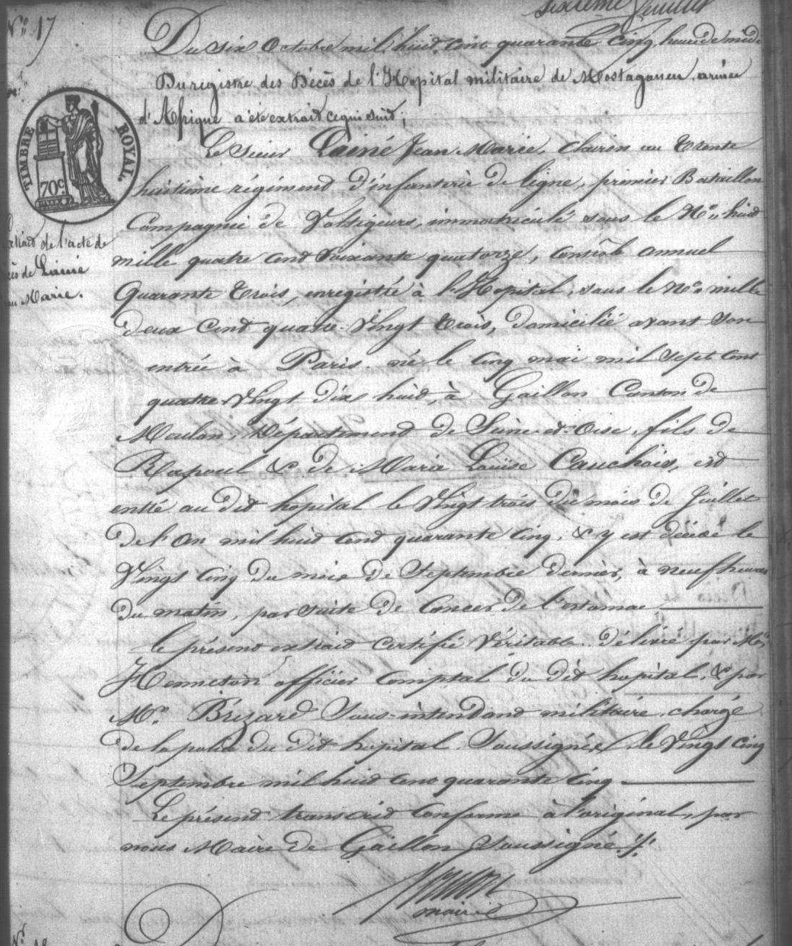 sixième feuillet
N° 17
Du six Octobre mil huit cent quarante cinq, heure de midi
Du registre des Décès de l'Hopital militaire de Mostaganem, armée
d'Afrique a été extrait ce qui suit;
TIMBRE ROYAL.
70c
extrait de l'acte de
décès de Lainé
Jean Marie.
Le Sieur Lainé Jean Marie, Clairon au trente
huitième régiment d'infanterie de ligne, premier Bataillon
Compagnie de Voltigeurs, immatriculé sous le N° huit
mille quatre cent soixante quatorze, annuel
Quarante trois, enregistré à l'Hopital, sous le N° mille
deux cent quatre Vingt trois, domicilié avant son
entrée à Paris, né le cinq mai mil sept cent
quatre Vingt dix huit, à Gaillon Canton de
Meulan, Département de Seine et Oise, fils de
& de Marie Louise Cauchois, est
entré au dit hopital le Vingt trois du mois de Juillet
de l'an mil huit cent quarante cinq, & y est décédé le
Vingt cinq du mois de Septembre dernier, à neuf heures
du matin, par suite de Cancer de l'estomac
Le présent extrait certifié Véritable délivré par Mr
Henneton officier Comptal du dit hopital, & par
Mr. Bizard Sous-intendant militaire chargé
de la police du dit hopital Soussignés, le Vingt cinq
Septembre mil huit cent quarante cinq
Le présent transcrit Conforme à l'original, par
nous Maire de Gaillon Soussigné./.
maire
N° 18